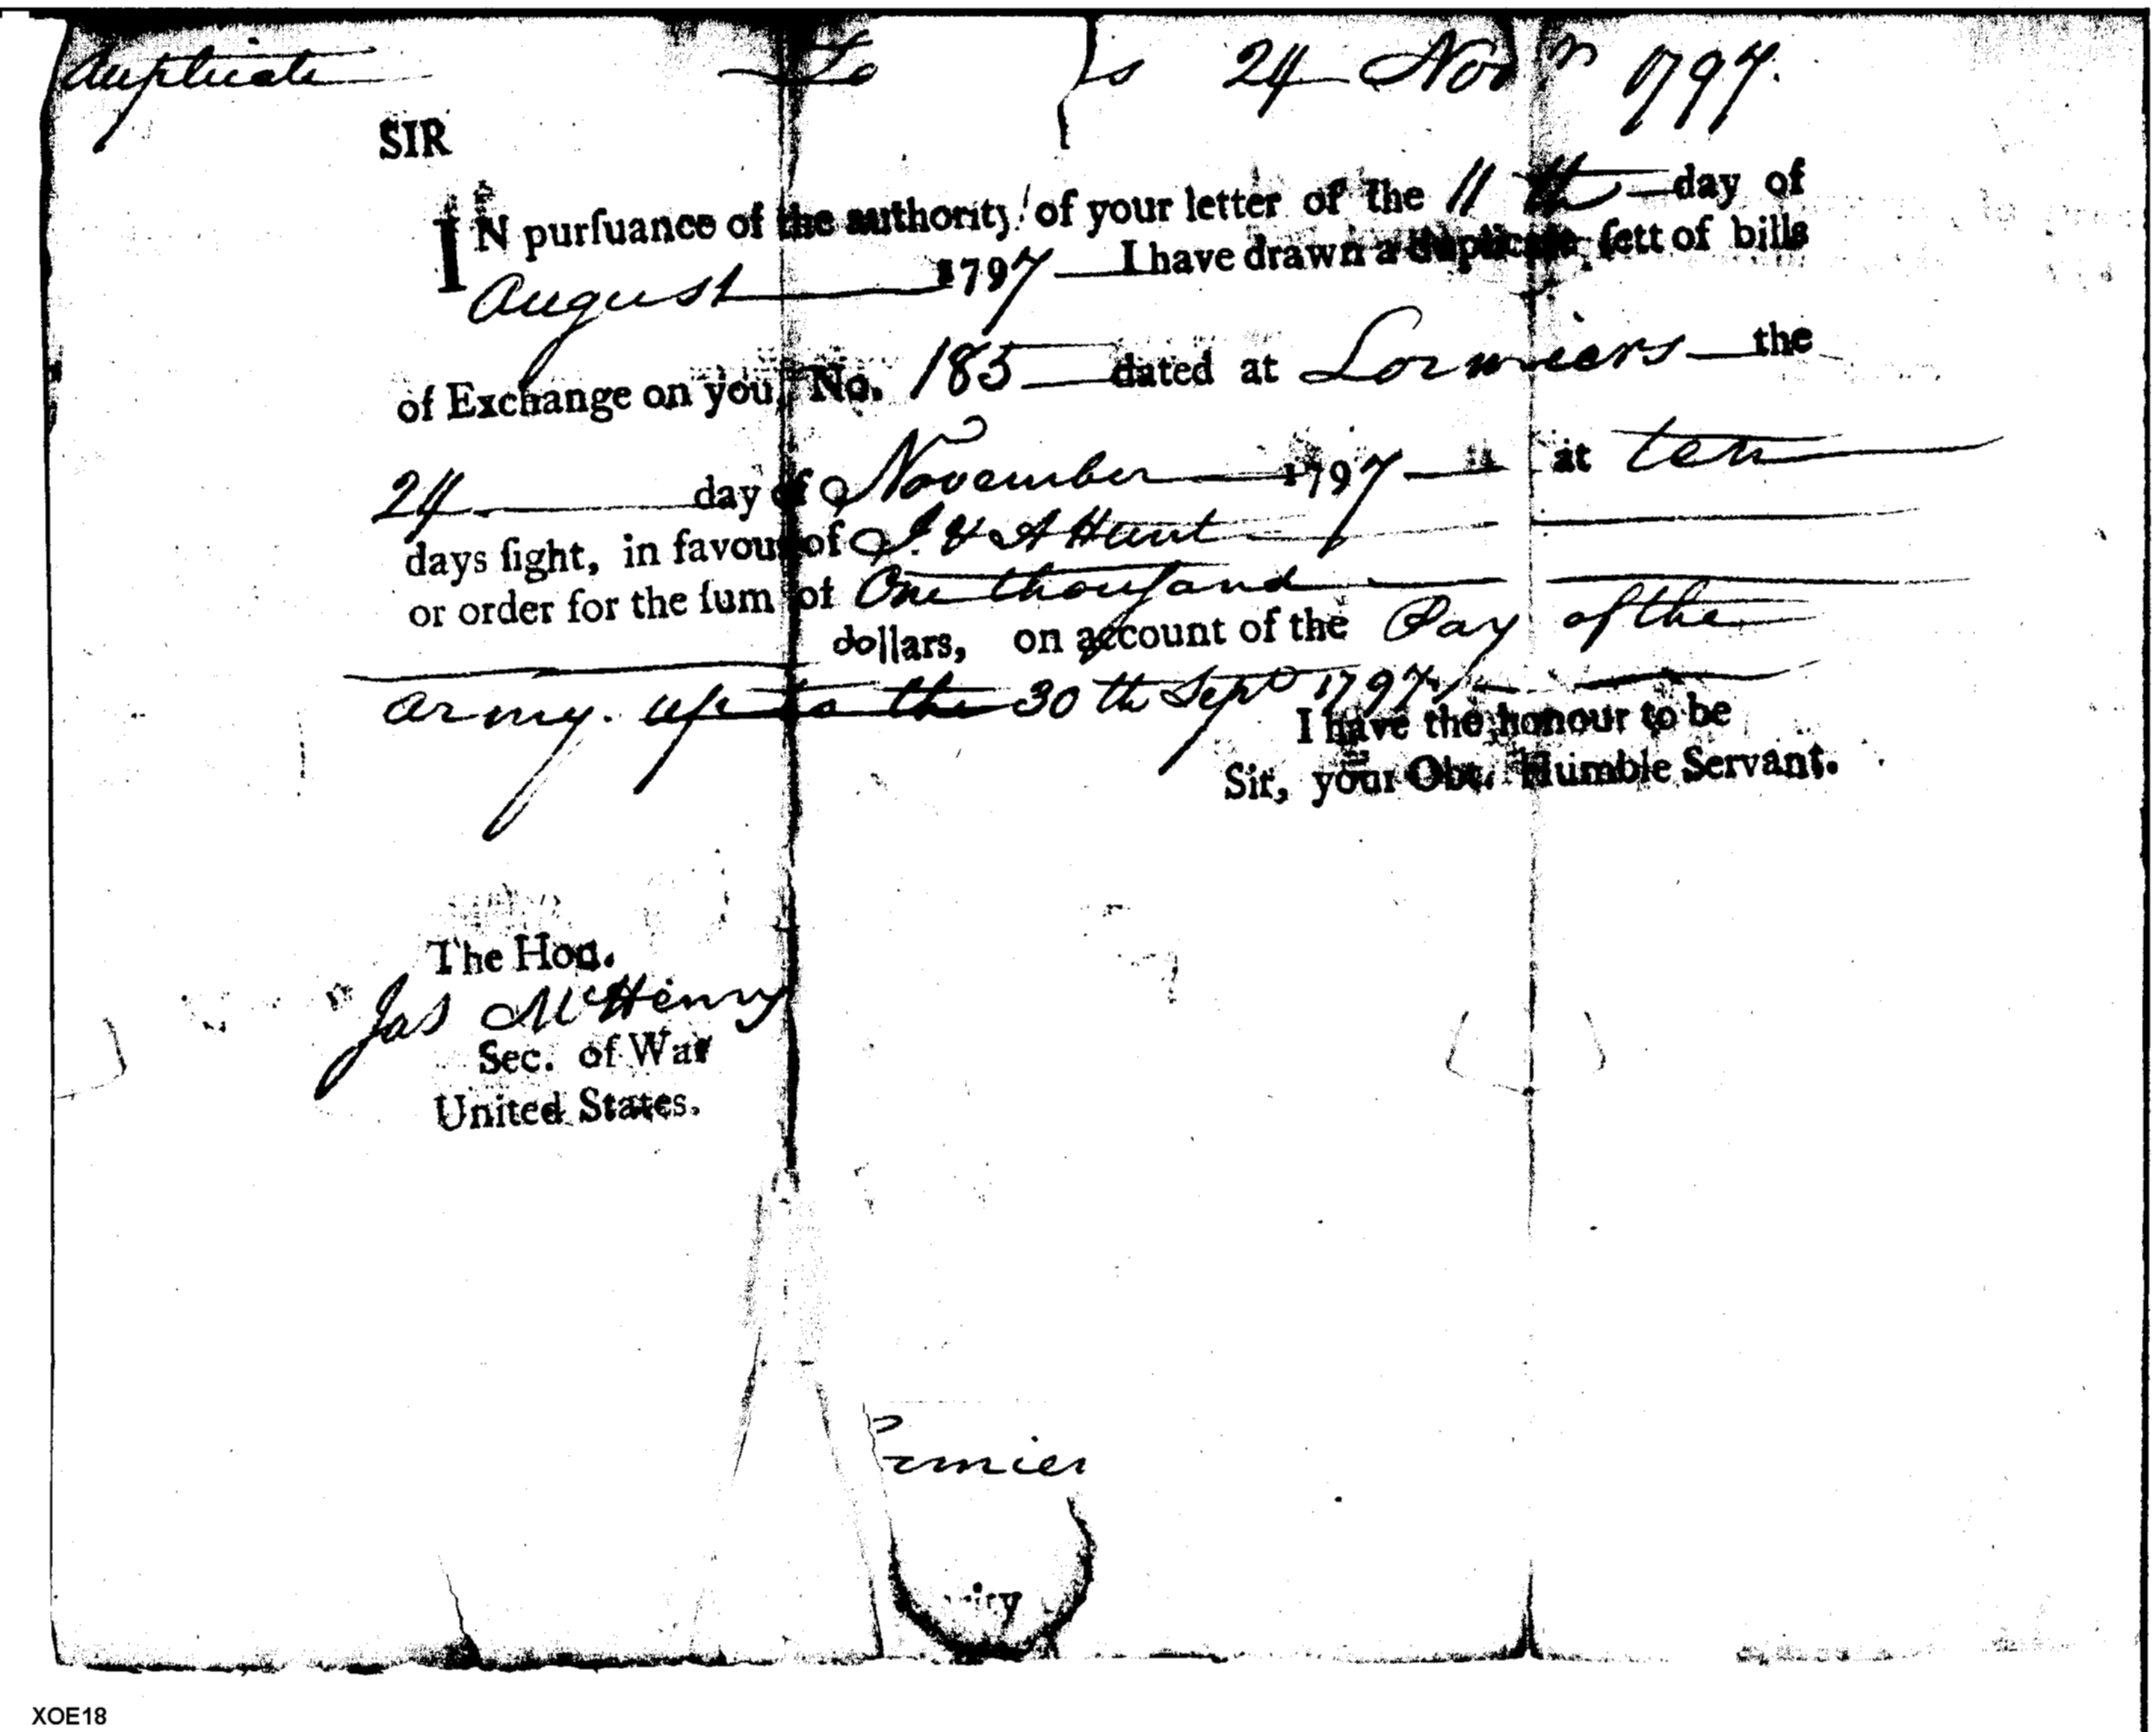 duplicate Lo s 24 Novr 1797.
SIR
IN purſuance of the authority of your letter of the 11 th day of
August 1797 I have drawn a duplicate ſett of bills
of Exchange on you, No. 185 dated at Lormiers the
24 day of November 1797 at ten
days ſight, in favour of J. & A Hunt
or order for the ſum of One thouſand
dollars, on account of the Pay of the
army. up to the 30th Sept 1797
I have the honour to be
Sir, your Obt. Humble Servant.
The Hon.
Jas McHenry
Sec. of War
United States.
XOE18